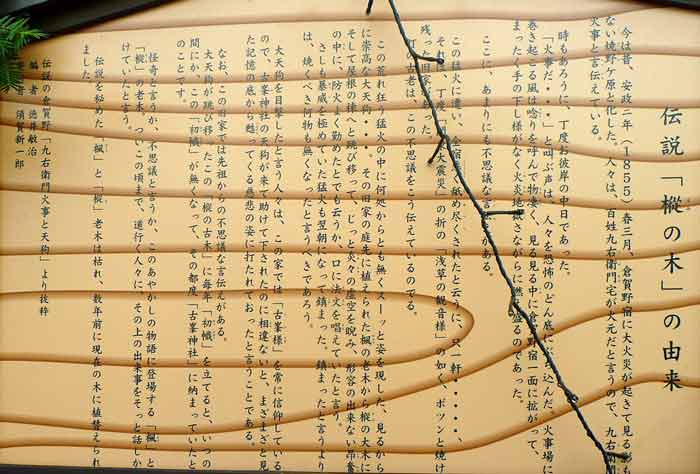 伝説「樅の木」の由来
今は昔、安政二年（1855）春三月、倉賀野宿に大火災が起きて見る影
ない焼野ケ原と化した。人々は、百姓九右衛門宅が火元だと言うので、九右
火事と言伝えている。
時もあろうに、丁度お彼岸の中日であった。
「火事だ・・・」と叫ぶ声は、人々を恐怖のどん底にぶち込んだ。火事場に
巻き起こる風は唸りを呼んで物凄く、見る見る中に倉賀野宿一面に拡がって、
まったく手の下し様がなく火炎地 さながらに燃え盛るのであった。
ここに、あまりにも不思議な言 がある。
この猛火に遭い、全宿 舐め尽くされたと云うに、只一軒・・・・・、
それは、丁度 大震災」の折の「浅草の観音様」の如く、ポツンと焼け
残った旧家 あった。
町の古老は、この不思議をこう伝えているのでる。
この荒れ狂う猛火の中に何処からとも無くスーッと姿を現した、見るから
に崇高な大天狗・・・。その旧家の庭先に植えられた楓の老木から樅の大木に
そして屋根の棟へと跳び移って、じっと炎々の虚空を睨み、形容の出来ない昂奮
の中に、防火に勤めたとでも云うか、口に法火を唱えていたと言う。
さしも暴威を極めていた猛火も翌朝になって鎮まった。鎮まったと言うより
は、焼くべき何物も無くなったと言うべきであろう。
大天狗を目撃したと言う人々は、この家では「古峯様」を常に信仰している
ので、古峯神社の天狗が来て助けて下されたのに相違ないと、まざまざと見
た記憶の底から甦ってくる慈悲の姿に打たれておったと言うことである。
なお、この旧家では先祖からの不思議な言伝えがある。
大天狗が跳び移ったこの「樅の古木」に毎年「初幟」を立てると、いつの
間にか、この「初幟」が無くなって、その都度「古峯神社」に納まっていたと
のことです。
怪奇と言うか、不思議と言うか、このあやかしの物語に登場する「楓」と
「樅」の老木、ついこの頃まで、道行く人々に、その上の出来事をそっと話しか
けていたと言う。
伝説を秘めた「楓」と「樅」老木は枯れ、数年前に現在の木に植替えられ
ました。
伝説の倉賀野「九右衛門火事と天狗」より抜粋
編 者 徳井敏治
須賀新一郎